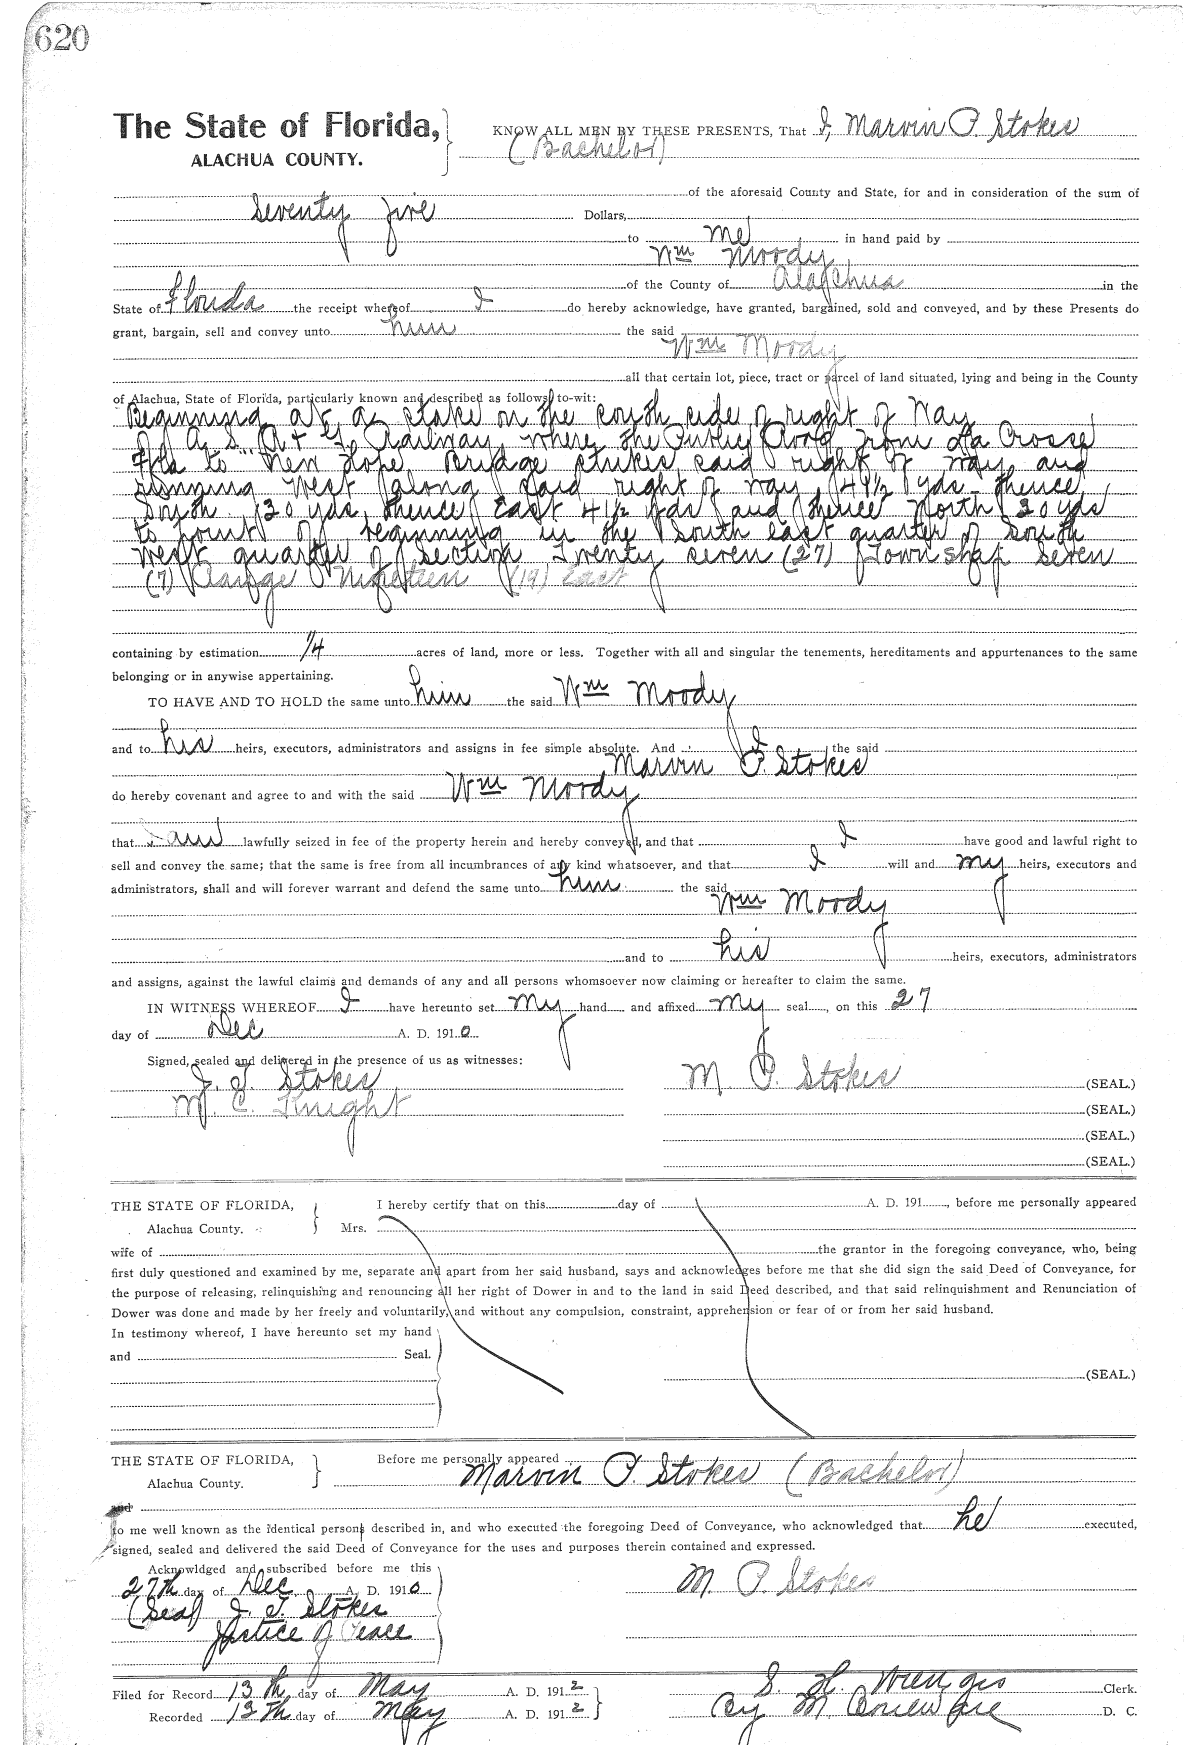 620
The State of Florida,
ALACHUA COUNTY.
KNOW ALL MEN BY THESE PRESENTS, That I, Marvin P. Stokes
(Bachelor)
of the aforesaid County and State, for and in consideration of the sum of
Seventy five Dollars,
to me in hand paid by
Wm Moody
of the County of Alachua in the
State of Florida the receipt whereof I do hereby acknowledge, have granted, bargained, sold and conveyed, and by these Presents do
grant, bargain, sell and convey unto him the said
Wm Moody
all that certain lot, piece, tract or parcel of land situated, lying and being in the County
of Alachua, State of Florida, particularly known and described as follows, to-wit:
Beginning at a stake on the south side of right of Way
of A. S. & G. Railway where the Public Road from La Crosse
Fla to New Hope Bridge strikes said right of way and
running West along said right of way 49½ yds thence
South 20 yds, thence East 49½ yds and thence North 20 yds
to point of beginning in the South east quarter of South
West quarter of Section Twenty seven (27) Township Seven
(7) Range Nineteen (19) East
containing by estimation 1/4 acres of land, more or less. Together with all and singular the tenements, hereditaments and appurtenances to the same
belonging or in anywise appertaining.
TO HAVE AND TO HOLD the same unto him the said Wm Moody
and to his heirs, executors, administrators and assigns in fee simple absolute. And I the said
Marvin P. Stokes
do hereby covenant and agree to and with the said Wm Moody
that I am lawfully seized in fee of the property herein and hereby conveyed, and that I have good and lawful right to
sell and convey the same; that the same is free from all incumbrances of any kind whatsoever, and that I will and my heirs, executors and
administrators, shall and will forever warrant and defend the same unto him the said
Wm Moody
and to his heirs, executors, administrators
and assigns, against the lawful claims and demands of any and all persons whomsoever now claiming or hereafter to claim the same.
IN WITNESS WHEREOF I have hereunto set my hand and affixed my seal, on this 27
day of Dec A. D. 1910
Signed, sealed and delivered in the presence of us as witnesses:
J. T. Stokes
M. P. Stokes (SEAL.)
M. C. Knight
(SEAL.)
(SEAL.)
(SEAL.)
THE STATE OF FLORIDA,
Alachua County.
I hereby certify that on this day of A. D. 191, before me personally appeared
Mrs.
wife of the grantor in the foregoing conveyance, who, being
first duly questioned and examined by me, separate and apart from her said husband, says and acknowledges before me that she did sign the said Deed of Conveyance, for
the purpose of releasing, relinquishing and renouncing all her right of Dower in and to the land in said Deed described, and that said relinquishment and Renunciation of
Dower was done and made by her freely and voluntarily, and without any compulsion, constraint, apprehension or fear of or from her said husband.
In testimony whereof, I have hereunto set my hand
and Seal.
(SEAL.)
THE STATE OF FLORIDA,
Alachua County.
Before me personally appeared
Marvin P. Stokes (Bachelor)
and
to me well known as the identical persons described in, and who executed the foregoing Deed of Conveyance, who acknowledged that he executed,
signed, sealed and delivered the said Deed of Conveyance for the uses and purposes therein contained and expressed.
Acknowldged and subscribed before me this
27th day of Dec A. D. 1910
M P Stokes
(Seal) J. T. Stokes
Justice of Peace
Filed for Record 13th day of May A. D. 1912
S. H. Wienges Clerk.
Recorded 13th day of May A. D. 1912
By M. D. C.